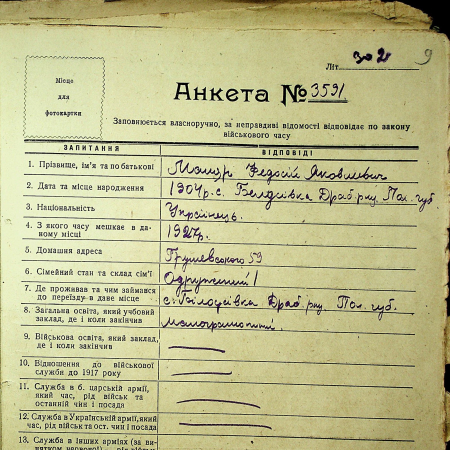 Літ. 302
9
Місце
для
фотокартки
Анкета № 3591
Заповнюється власноручно, за неправдиві відомості відповідає по закону
військового часу
ЗАПИТАННЯ ВІДПОВІДІ
1. Прізвище, ім'я та по батькові Федосій Якович
2. Дата та місце народження 1904 р. с. Білоусівка Драб. р-ну, Пол. губ.
3. Національність Українець.
4. З якого часу мешкає в да-
ному місці 1927 р.
5. Домашня адреса Грушевського 59
6. Сімейний стан та склад сім'ї Одружений 1
7. Де проживав та чим займався
до переїзду в дане місце с. Білоусівка Драб. р-ну, Пол. губ.
8. Загальна освіта, який учбовий
заклад, де і коли закінчив Малограмотний.
9. Військова освіта, який заклад,
де і коли закінчив
10. Відношення до військової
служби до 1917 року
11. Служба в б. царській армії,
який час, рід військ та
останній чин і посада
12. Служба в Українській армії, який
час, рід військ та ост. чин і посада
13. Служба в інших арміях (за ви-